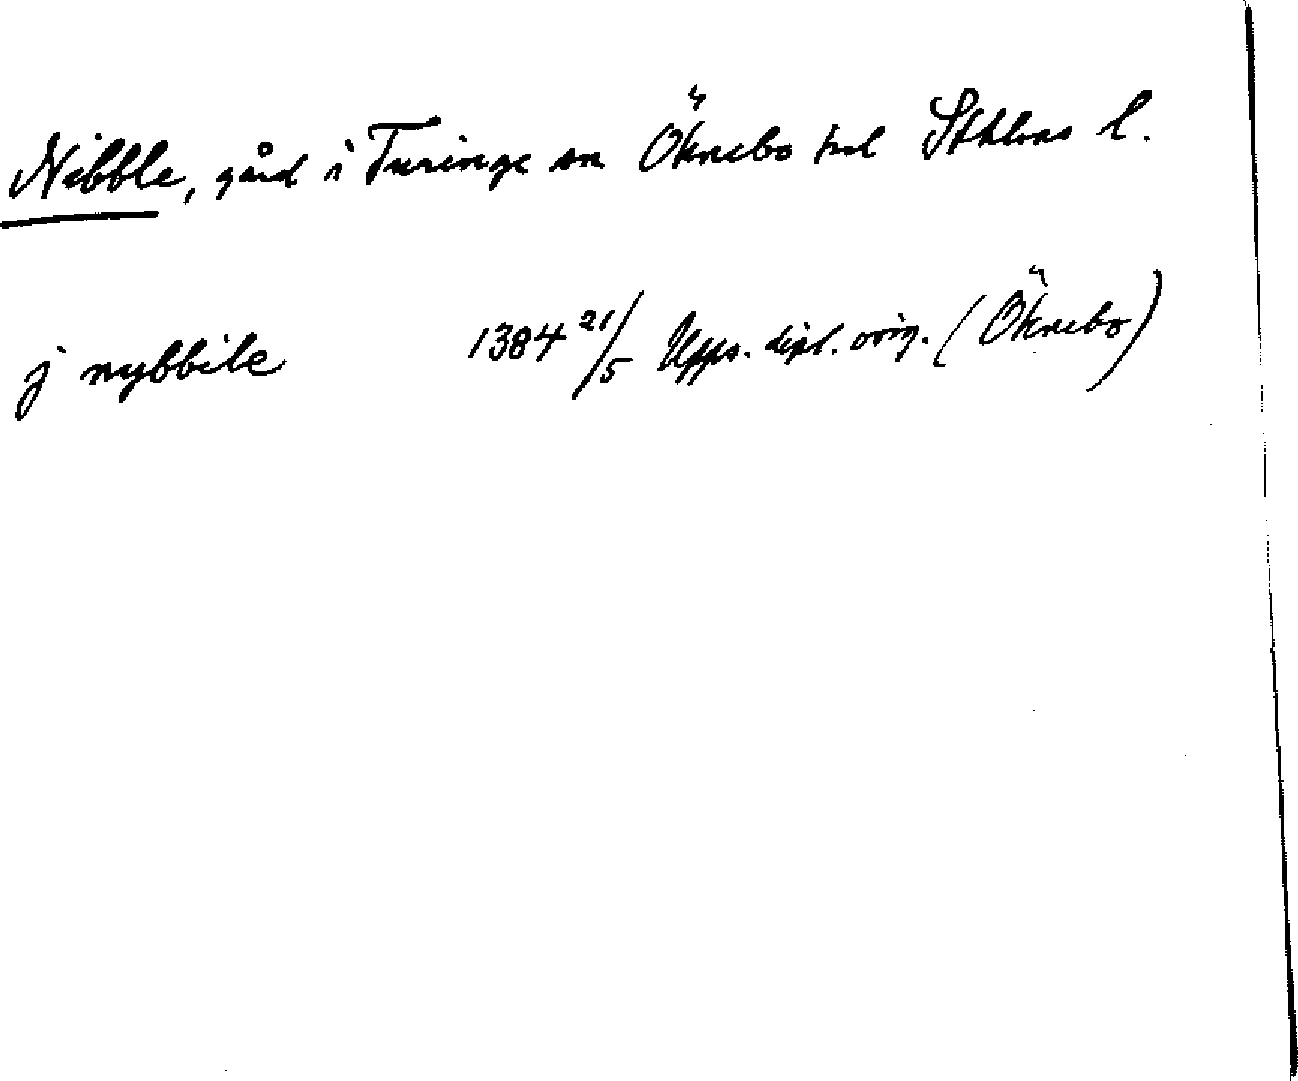 Nibble, gård i Turinge sn Öknebo hd Sthlms l.
j nybbile 1384 21/5 Upps. dipl. orig. (Öknebo)